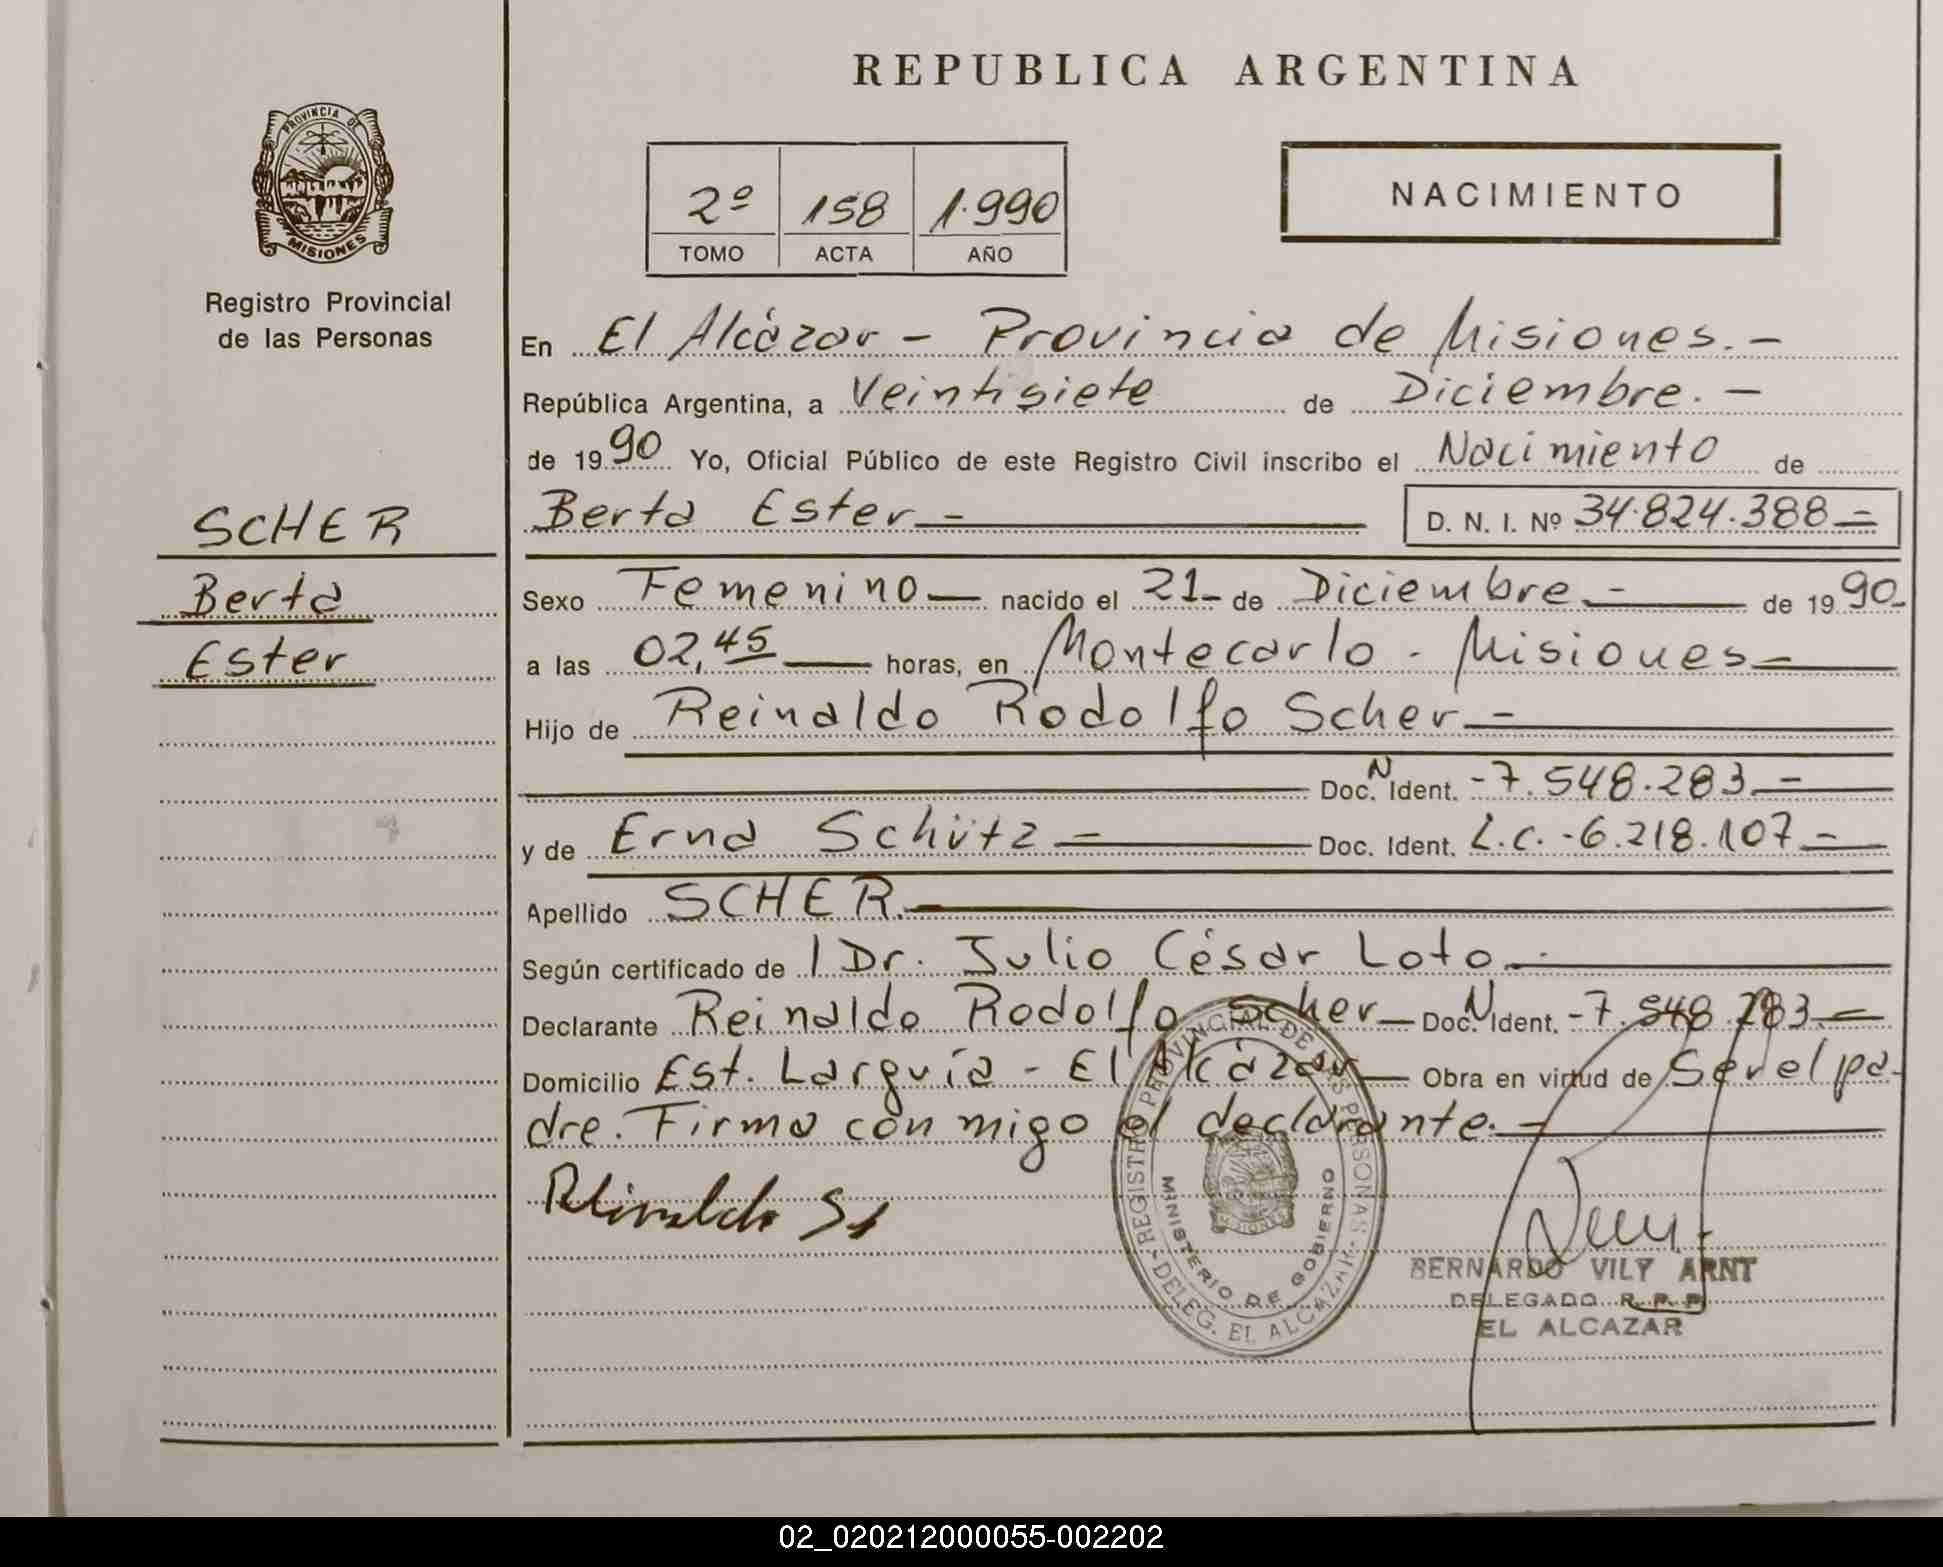 REPUBLICA ARGENTINA
PROVINCIA DE
MISIONES
Registro Provincial
de las Personas
2º 158 1.990
TOMO ACTA AÑO
NACIMIENTO
En El Alcázar - Provincia de Misiones. -
República Argentina, a Veintisiete de Diciembre. -
de 1990 Yo, Oficial Público de este Registro Civil inscribo el Nacimiento de
Berta Ester - D. N. I. Nº 34.824.388 =
SCHER
Berta
Ester
Sexo Femenino - nacido el 21 - de Diciembre - de 1990 -
a las 02,45 horas, en Montecarlo - Misiones -
Hijo de Reinaldo Rodolfo Scher -
Doc. N Ident. - 7.548.283. -
y de Erna Schütz = Doc. Ident. L.C. - 6.218.107 -
Apellido SCHER.
Según certificado de l Dr. Julio César Loto. -
Declarante Reinaldo Rodolfo Scher - Doc. N Ident. - 7.548.283. =
Domicilio Est. Larguía - El Alcázar - Obra en virtud de Ser el pa-
dre. Firma con migo el declarante. -
Reinaldo
REGISTRO PROVINCIAL DE LAS PERSONAS
MINISTERIO DE GOBIERNO
DELEG. EL ALCAZAR
MISIONES
BERNARDO VILY ARNT
DELEGADO R. P. P.
EL ALCAZAR
02_020212000055-002202